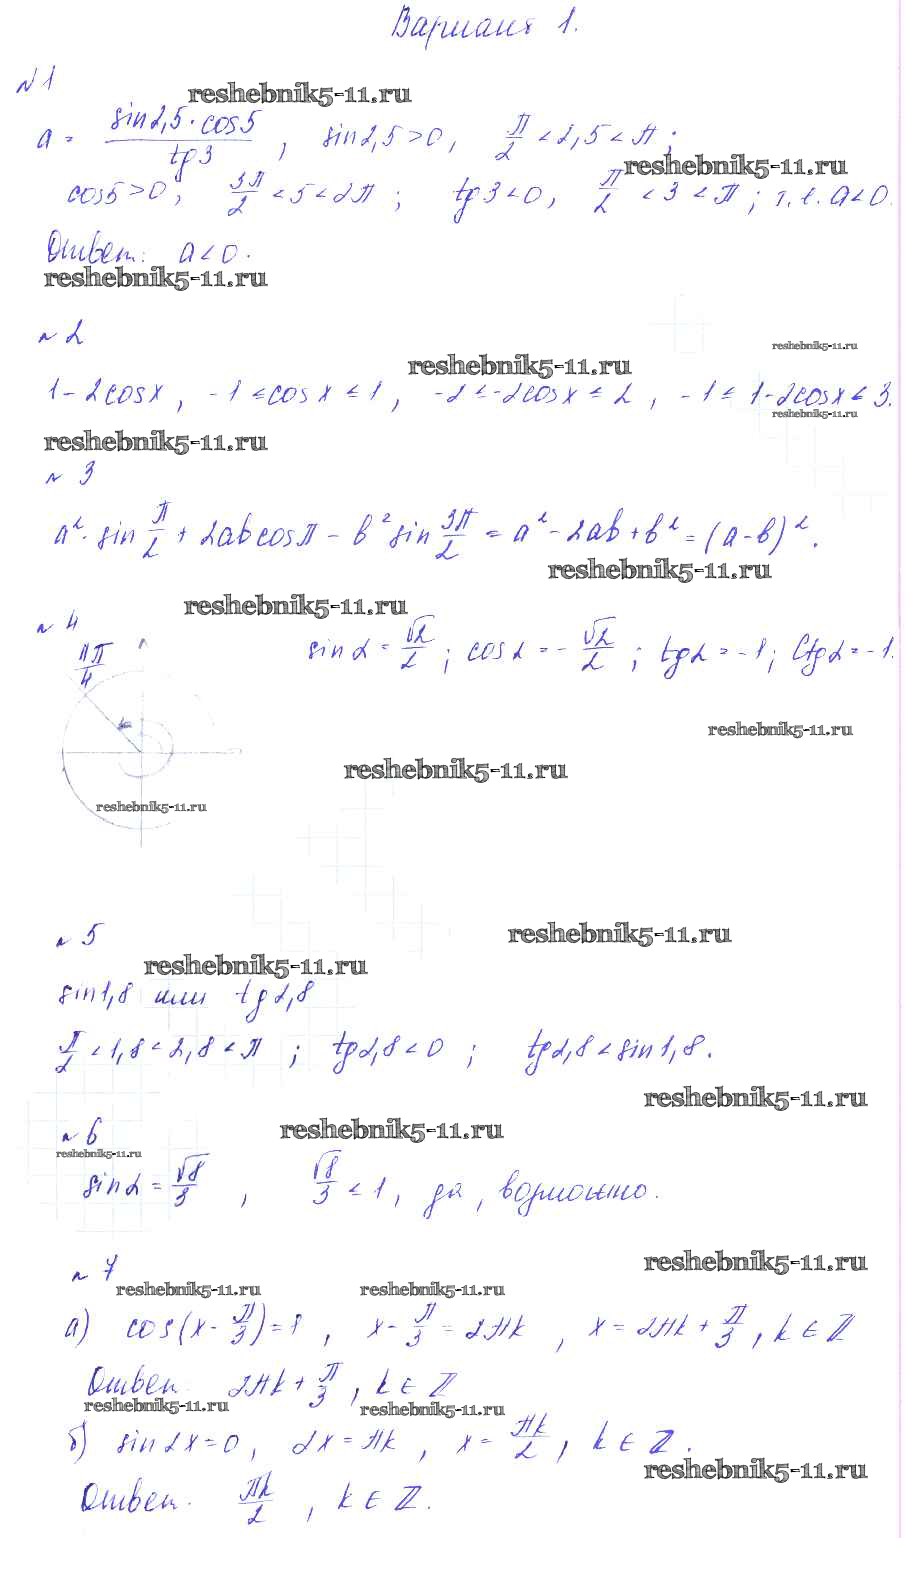 Вариант 1.
№ 1
reshebnik5-11.ru
a = sin2,5 · cos5 / tg3 , sin2,5 > 0, π/2 < 2,5 < π ;
reshebnik5-11.ru
cos5 > 0, 3π/2 < 5 < 2π ; tg3 < 0, π/2 < 3 < π ; т.е. a < 0.
Ответ: a < 0.
reshebnik5-11.ru
№ 2
reshebnik5-11.ru
reshebnik5-11.ru
1 - 2cosx, -1 ≤ cosx ≤ 1, -2 ≤ -2cosx ≤ 2, -1 ≤ 1 - 2cosx ≤ 3.
reshebnik5-11.ru
reshebnik5-11.ru
№ 3
a² · sin π/2 + 2ab cosπ - b² sin 3π/2 = a² - 2ab + b² = (a - b)².
reshebnik5-11.ru
reshebnik5-11.ru
№ 4
11π/4
sinα = √2/2 ; cosα = -√2/2 ; tgα = -1; ctgα = -1.
reshebnik5-11.ru
reshebnik5-11.ru
reshebnik5-11.ru
№ 5
reshebnik5-11.ru
reshebnik5-11.ru
sin1,8 или tg2,8
π/2 < 1,8 < 2,8 < π ; tg2,8 < 0 ; tg2,8 < sin1,8.
reshebnik5-11.ru
№ 6
reshebnik5-11.ru
reshebnik5-11.ru
sinα = √8/3 , √8/3 < 1, да, возможно.
№ 7
reshebnik5-11.ru
reshebnik5-11.ru
reshebnik5-11.ru
а) cos(x - π/3) = 1 , x - π/3 = 2πk , x = 2πk + π/3 , k ∈ Z
Ответ: 2πk + π/3 , k ∈ Z
reshebnik5-11.ru
reshebnik5-11.ru
б) sin2x = 0, 2x = πk , x = πk/2 , k ∈ Z.
reshebnik5-11.ru
Ответ. πk/2 , k ∈ Z.